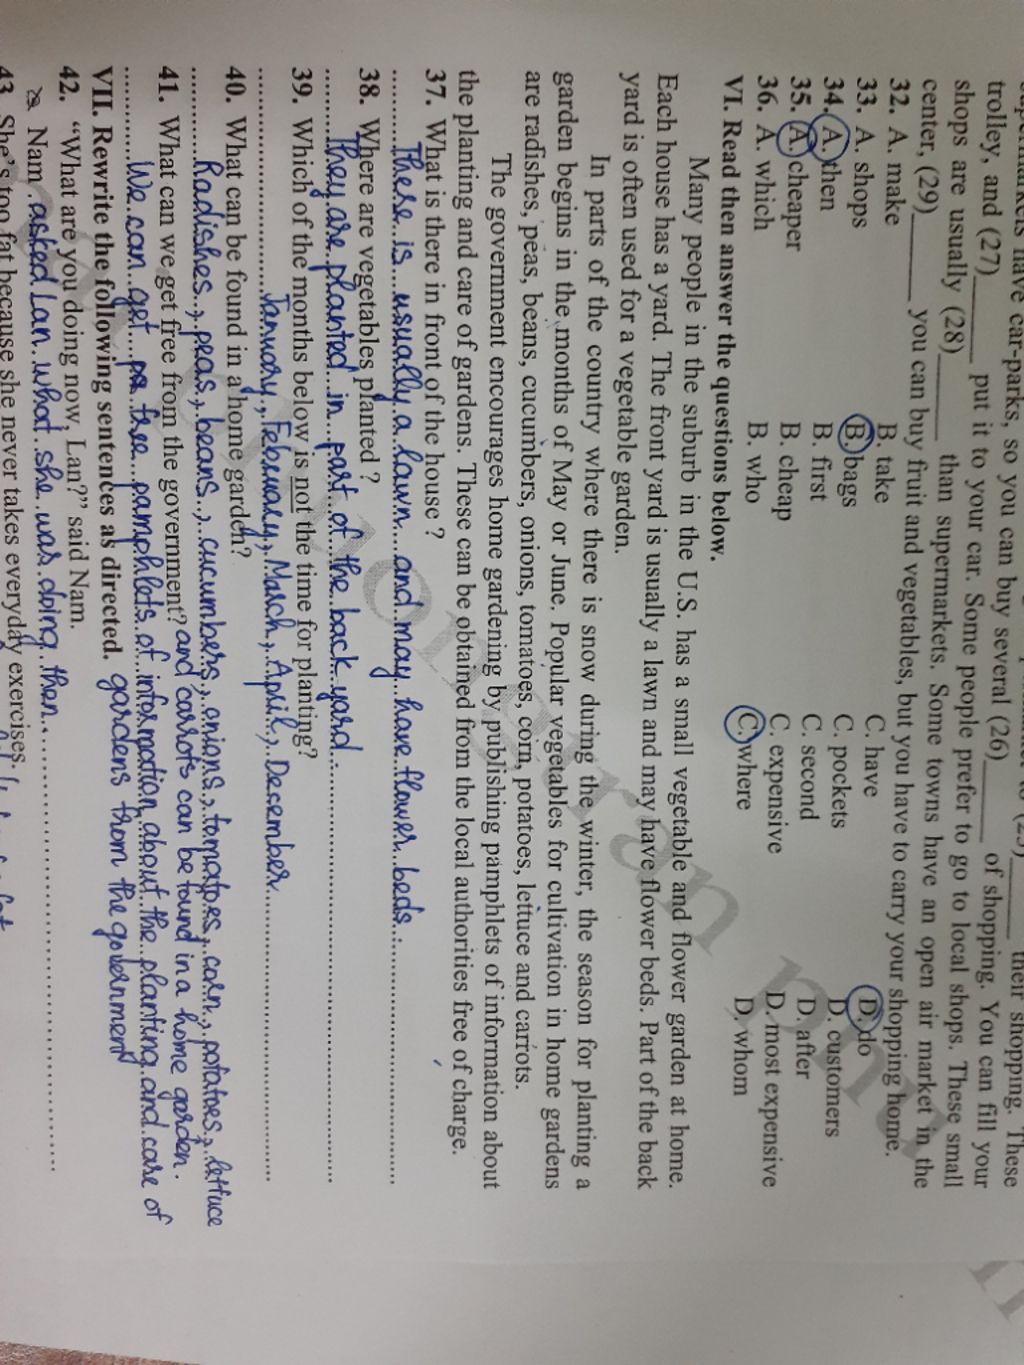 have car-parks, so you can buy several (26)______ of shopping. You can fill your
trolley, and (27)______ put it to your car. Some people prefer to go to local shops. These small
shops are usually (28)______ than supermarkets. Some towns have an open air market in the
center, (29)______ you can buy fruit and vegetables, but you have to carry your shopping home.
32. A. make B. take C. have D. do
33. A. shops B. bags C. pockets D. customers
34. A. then B. first C. second D. after
35. A. cheaper B. cheap C. expensive D. most expensive
36. A. which B. who C. where D. whom
VI. Read then answer the questions below.
Many people in the suburb in the U.S. has a small vegetable and flower garden at home.
Each house has a yard. The front yard is usually a lawn and may have flower beds. Part of the back
yard is often used for a vegetable garden.
In parts of the country where there is snow during the winter, the season for planting a
garden begins in the months of May or June. Popular vegetables for cultivation in home gardens
are radishes, peas, beans, cucumbers, onions, tomatoes, corn, potatoes, lettuce and carrots.
The government encourages home gardening by publishing pamphlets of information about
the planting and care of gardens. These can be obtained from the local authorities free of charge.
37. What is there in front of the house ?
There is usually a lawn and may have flower beds.
38. Where are vegetables planted ?
They are planted in part of the back yard.
39. Which of the months below is not the time for planting?
January, February, March, April, December
40. What can be found in a home garden?
Radishes, peas, beans, cucumbers, onions, tomatoes, corn, potatoes, lettuce
and carrots can be found in a home garden.
41. What can we get free from the government?
We can get free pamphlets of information about the planting and care of
gardens from the government
VII. Rewrite the following sentences as directed.
42. “What are you doing now, Lan?” said Nam.
Nam asked Lan what she was doing then.
43 She's too fat because she never takes everyday exercises.